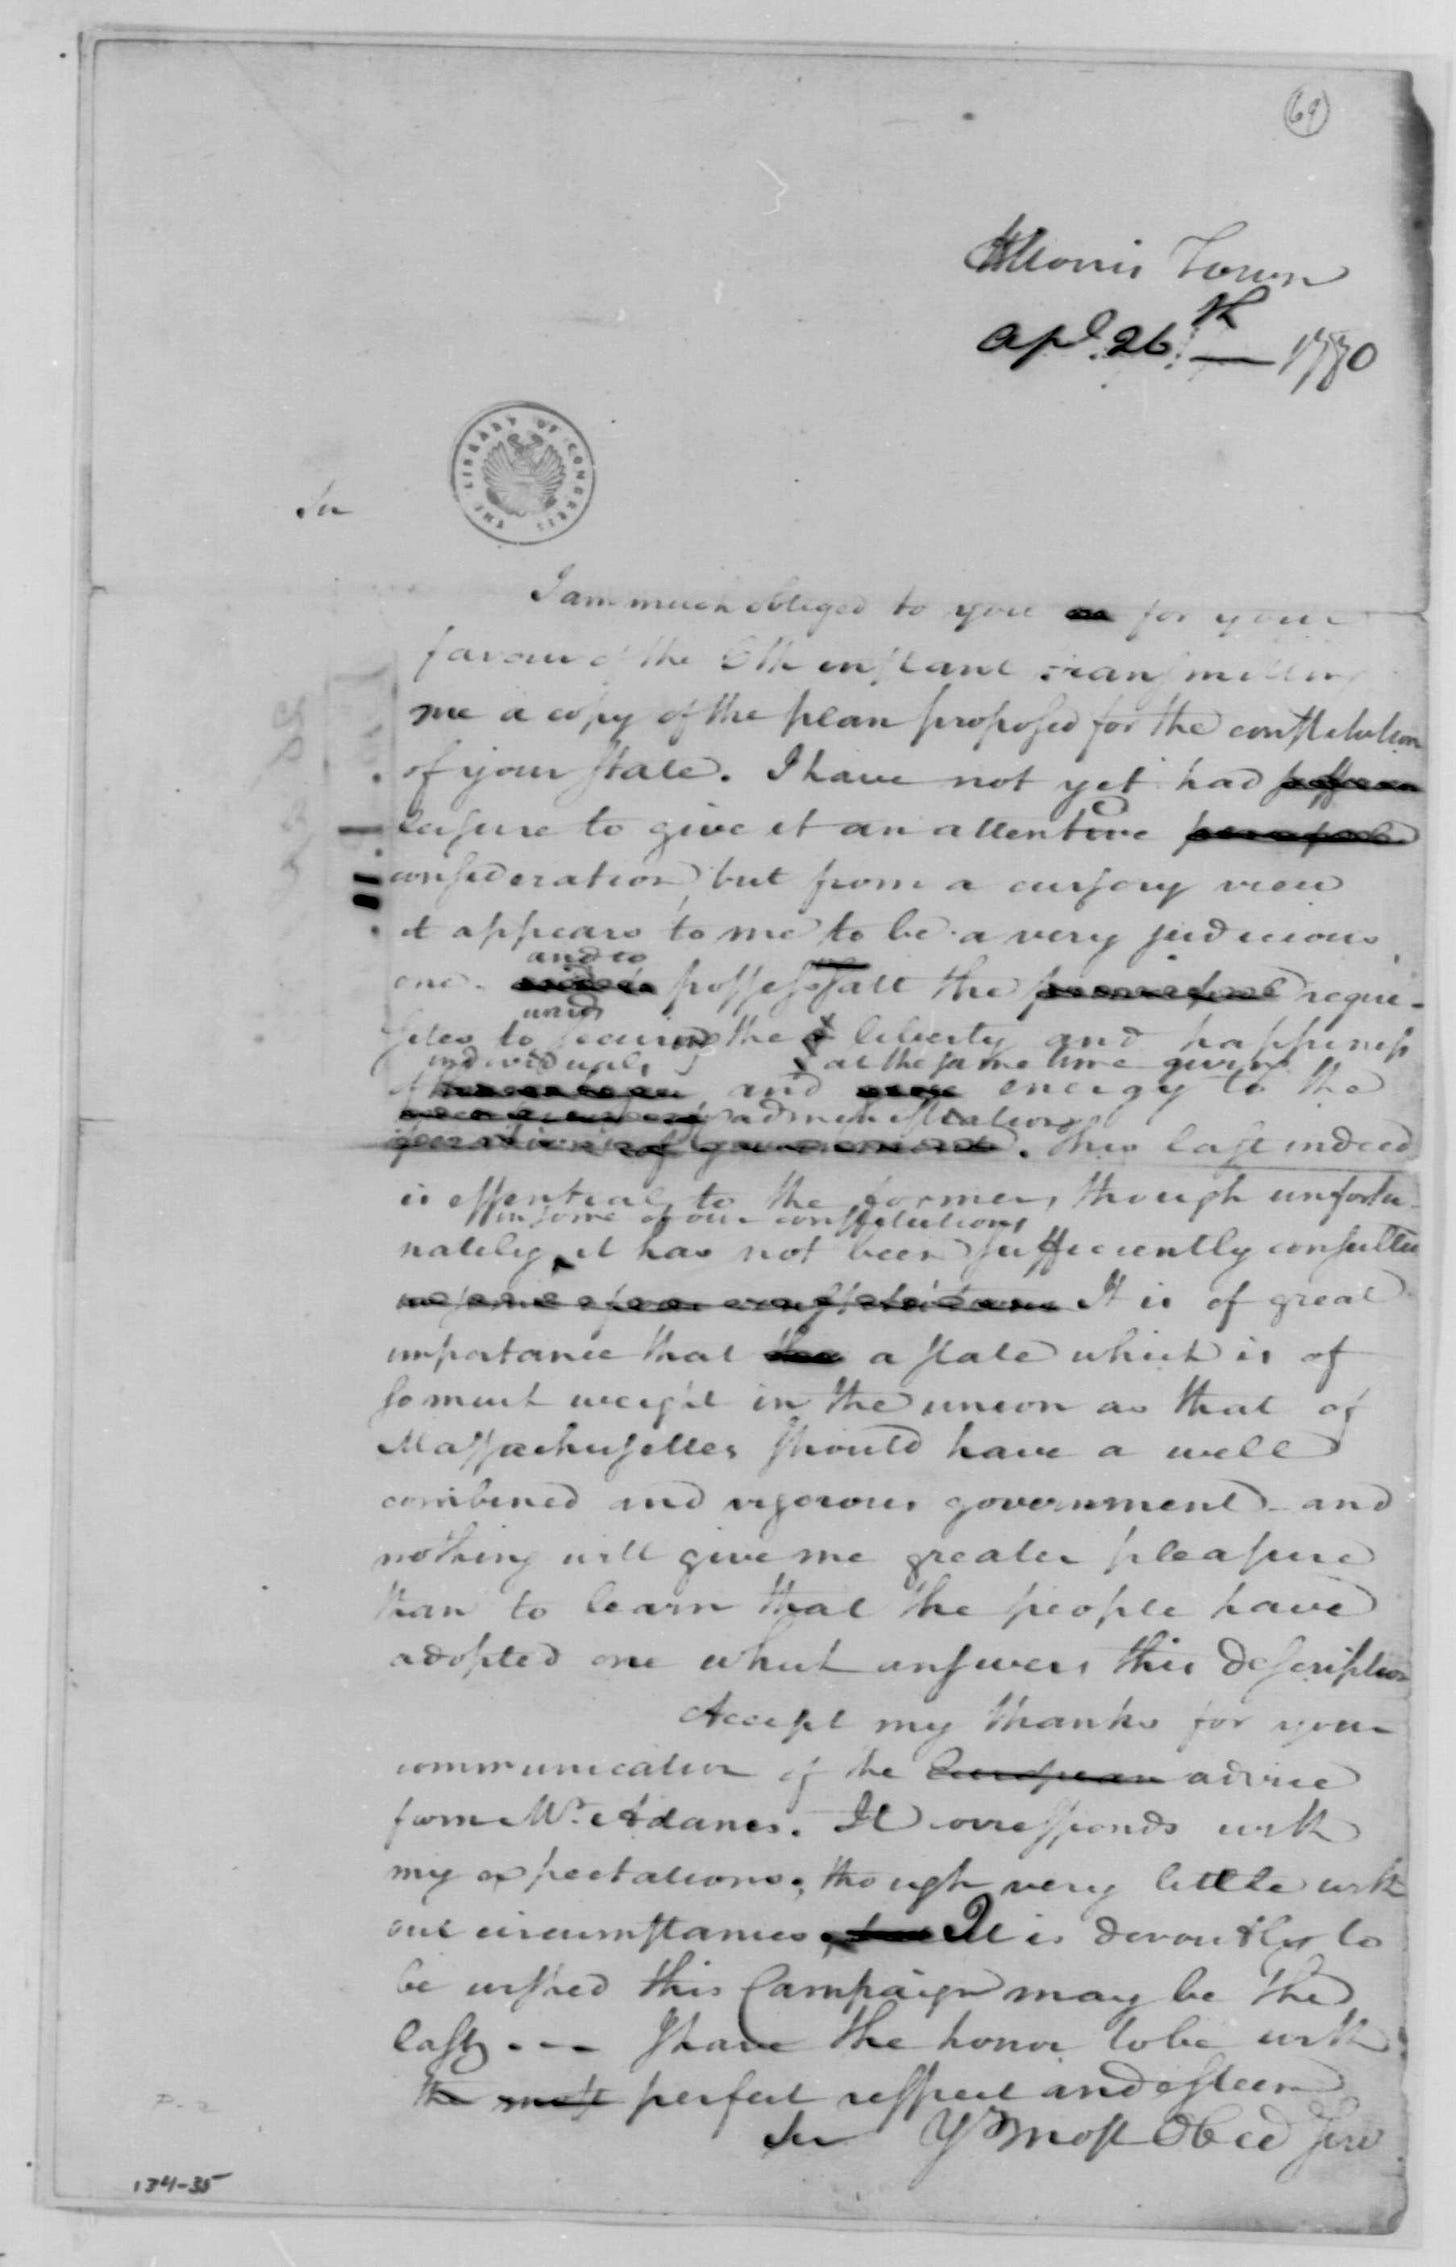 69
Morris Town
Apl. 26th — 1780
THE LIBRARY OF CONGRESS
Sir
I am much obliged to you for your
favour of the 6th instant transmitting
me a copy of the plan proposed for the constitution
of your state. I have not yet had
leisure to give it an attentive
consideration, but from a cursory view
it appears to me to be a very judicious
and to
one. possess all the requi-
sites to securing the liberty and happiness
individuals at the same time giving
of and energy to the
administration
. This last indeed
is essential to the former, though unfortu-
in some of our constitutions
nately, it has not been sufficiently consulted
in some of our constitutions It is of great
importance that the a state which is of
so much weight in the union as that of
Massachusettes should have a well
combined and vigorous government - and
nothing will give me greater pleasure
than to learn that the people have
adopted one which answers this description
Accept my thanks for your
communication of the European advice
from Mr. Adams. It corresponds with
my expectations; though very little with
our circumstances. It is devoutly to
be wished this Campaign may be the
last. -- I have the honor to be with
the most perfect respect and esteem
Sir Yr most Obed Serv
P-2
134-35